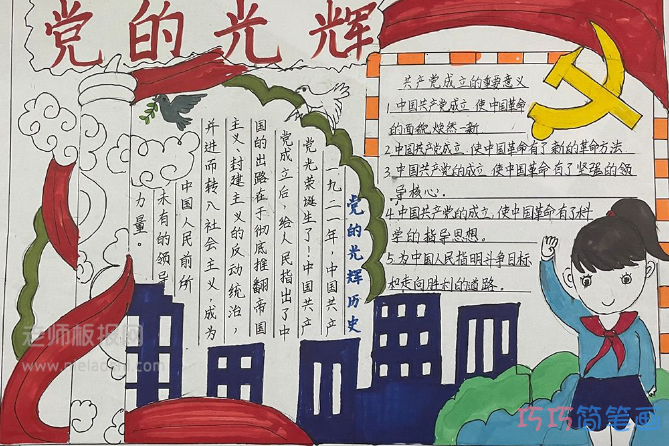 党的光辉
党的光辉历史
一九二一年，中国共产
党光荣诞生了！中国共产
党成立后，给人民指出了中
国的出路在于彻底推翻帝国
主义、封建主义的反动统治，
并进而转入社会主义，成为
中国人民前所
未有的领导
力量。
共产党成立的重要意义
1.中国共产党成立，使中国革命
的面貌焕然一新
2.中国共产党成立，使中国革命有了新的革命方法
3.中国共产党的成立，使中国革命有了坚强的领
导核心.
4.中国共产党的成立，使中国革命有了科
学的指导思想。
5.为中国人民指明斗争目标
和走向胜利的道路.
老师板报网
巧巧简笔画